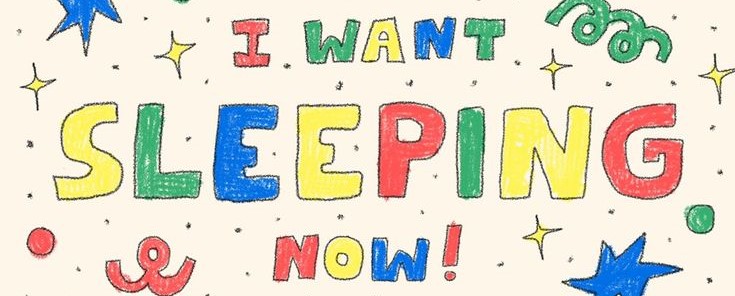 I WANT
SLEEPING
NOW!